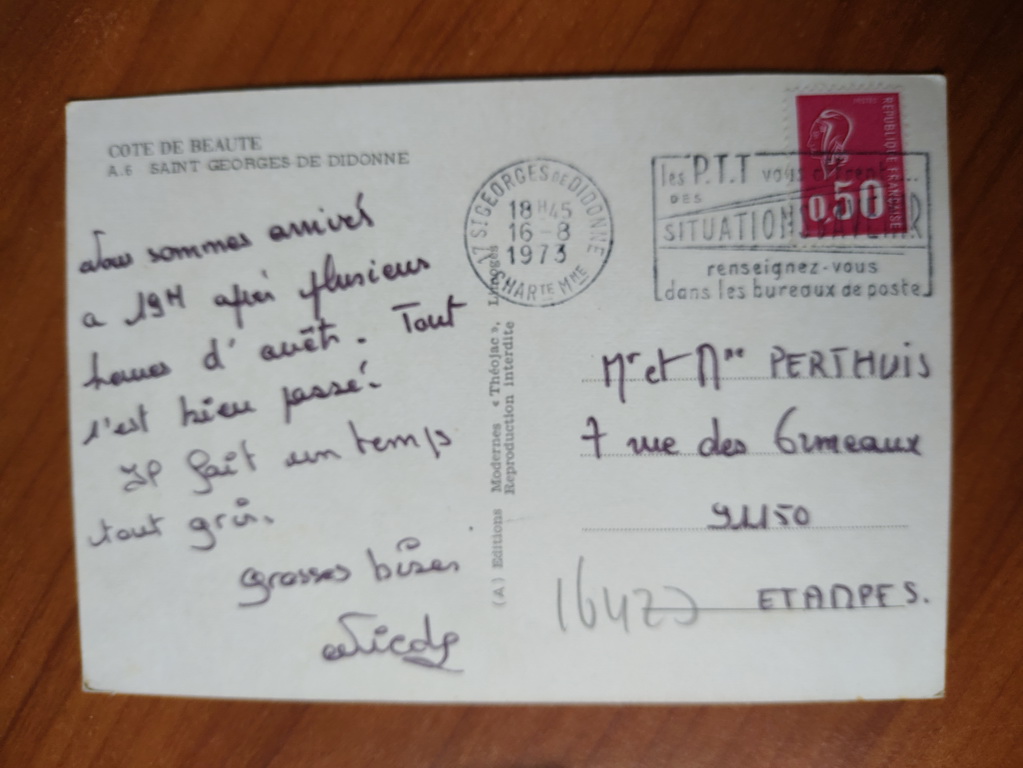 COTE DE BEAUTE
A.6 SAINT GEORGES DE DIDONNE
Nous sommes arrivés
a 19H après plusieurs
heures d'arrêt. Tout
s'est bien passé.
Il fait un temps
tout gris.
Grosses bises
Nicole
(A) Editions Modernes « Théojac », Limoges
Reproduction interdite
17 ST GEORGES DE DIDONNE
18H45
16-8
1973
CHARTE MME
les P.T.T vous offrent...
DES
SITUATIONS D'AVENIR
renseignez-vous
dans les bureaux de poste
REPUBLIQUE FRANÇAISE
0,50
Mr et Mme PERTHUIS
7 rue des Ormeaux
91150
ETAMPES.